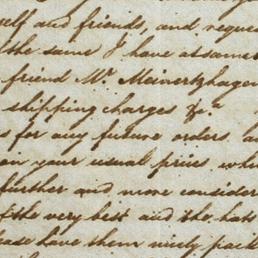 self and friends, and reque
the same I have at same
friend Mr. Meinertzhagen
shipping charges &c.
s for any future orders, a
on your usual prices whi
further and more consider
of the very best and the hats
ease have them nicely pack